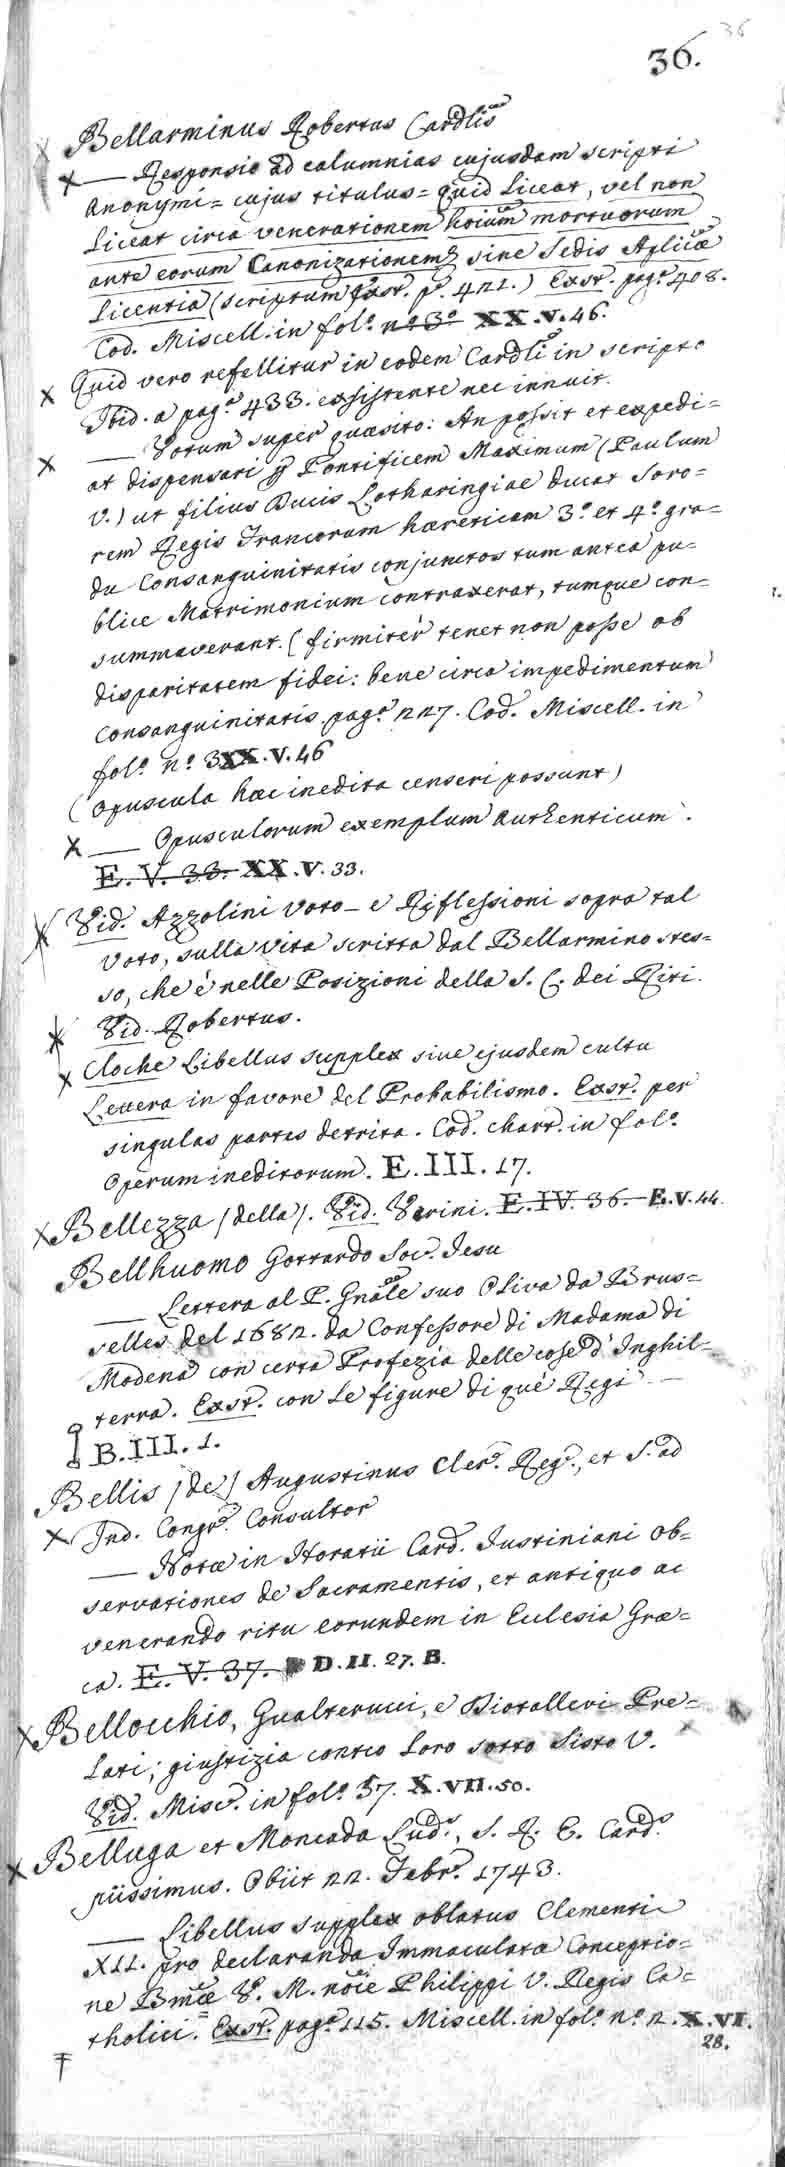 36
36.
Bellarminus Robertus Cardlis
— Responsio ad calumnias cujusdam scripti
anonymi = cujus titulus = quid liceat, vel non
liceat circa venerationem hoium mortuorum
ante eorum Canonizationem, sine Sedis Aplicæ
Licentia (scriptum Exst. p.ª 422.) Exst. pag.ª 408.
Cod. Miscell. in fol.º n.º 3.º XX.V.46.
Quid vero refellitur in eodem Cardli in scripto
Ibid. a pag.ª 433. existente nec innuit.
— Votum super quæsito: An possit et expedi=
at dispensari p Pontificem Maximum (Paulum
V.) ut filius Ducis Lotharingiae ducat Soro=
rem Regis Francorum hæreticam 3.º et 4.º gra=
du Consanguinitatis conjunctos tum antea pu=
blice Matrimonium contraxerat, tumque con=
summaverant. (firmitèr tenet non posse ob
disparitatem fidei: bene circa impedimentum
consanguinitatis. pag.ª 227. Cod. Miscell. in
fol.º n.º 3 XX.V.46
(Opuscula hæc inedita censeri possunt)
— Opusculorum exemplum authenticum.
E.V.33. XX.V.33.
Vid. Azzolini voto – e Riflessioni sopra tal
voto, sulla vita scritta dal Bellarmino stes=
so, che è nelle Posizioni della S. C. dei Riti.
Vid. Robertus.
Cloche Libellus supplex sine ejusdem cultu
Lettera in favore del Probabilismo. Exst. per
singulas partes detrita. Cod. chart. in fol.º
Operum ineditorum. E.III.17.
Bellezza (della). Vid. Verini. E.IV.36. E.V.44.
Bellhuomo Gottardo Soc. Jesu
— Lettera al P. Gnãle suo Oliva da Brus=
selles del 1682. da Confessore di Madama di
Modena con certa Profezia delle cose d'Inghil=
terra. Exst. con le figure di què Regi —
B.III.1.
Bellis (de) Augustinus Cler. Reg., et S. ad
Ind. Congr. Consultor
— Notæ in Horatii Card. Justiniani ob=
servationes de Sacramentis, et antiquo ac
venerando ritu eorundem in Ecclesia Græ=
ca. E.V.37. D.II.27.B.
Bellocchio, Gualterucci, e Diotallevi Pre=
lati; giustizia contro loro sotto Sisto V.
Vid. Misc. in fol.º 37. X.VII.50.
Belluga et Moncada Lud.s, S. R. E. Card.s
piissimus. Obiit 22. Febr. 1743.
— Libellus supplex oblatus Clementi
XII. pro declaranda Immaculatæ Conceptio=
ne Bmæ V. M. nõie Philippi V. Regis Ca=
tholici. Exst. pag.ª 115. Miscell. in fol.º n.º 2. X.VI.
28.